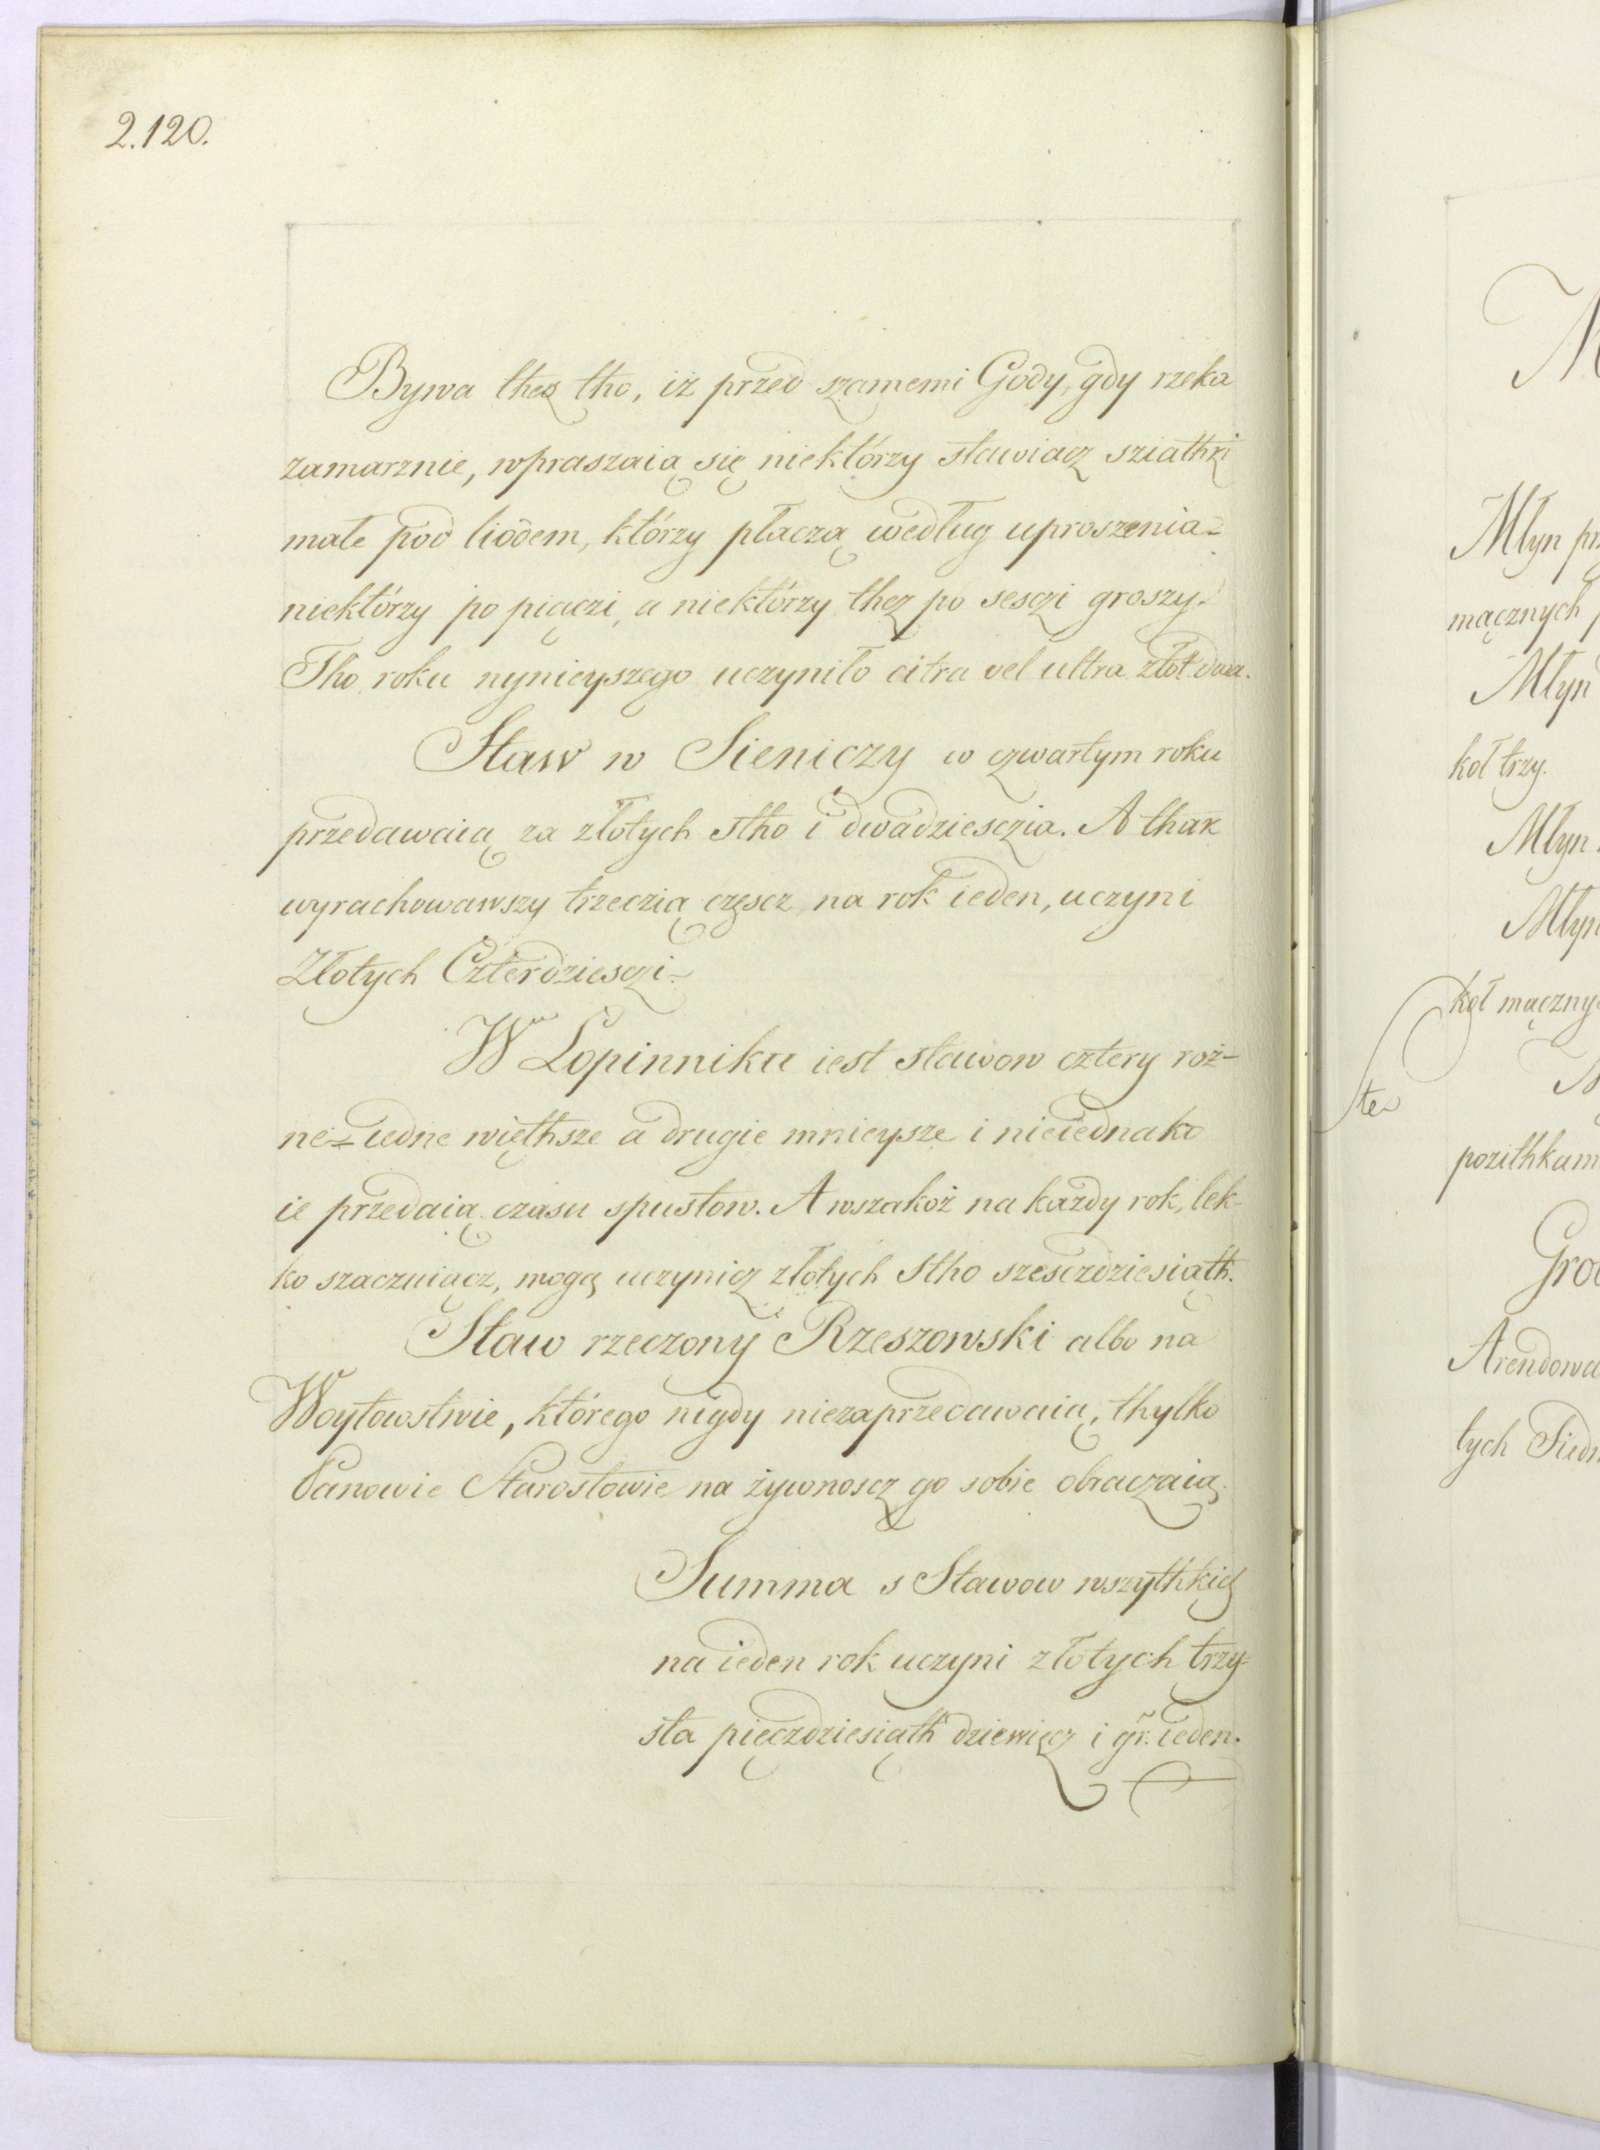 2.120.
Bywa thez tho, iż przed szamemi Gody, gdy rzeka
zamarznie, wpraszaią się niektórzy stawiacz sziathki
małe pod liodem, którzy płaczą według uproszenia
niektórzy po piączi, a niektórzy thez po sesczi groszy.
Tho roku nynieyszego uczyniło citra vel ultra złot dwa.
Staw w Sieniczy w czwartym roku
przedawaią za złotych stho i dwadziesczia. A thak
wyrachowawszy trzeczią częscz na rok ieden, uczyni
Złotych Czterdziesczi
W Łopinniku iest stawow cztery roż-
ne iedne więthsze a drugie mnieysze i nieiednako
ie przedaią czasu spustow. A wszakoż na każdy rok, lek-
ko szaczuiącz, mogą uczynicz złotych Stho szesczdziesiąth.
Staw rzeczony Rzeszowski albo na
Woytowstwie, którego nigdy niezaprzedawaią, thylko
Panowie Starostowie na żywnoscz go sobie obraczaią.
Summa s Stawow wszythkich
na ieden rok uczyni złotych trzy-
sta pięczdziesiąth dziewięcz i gr. ieden.
Młyn
mącznych
Młyn
koł trzy.
Młyn
Młyn
koł
pozithkam
Arendowa
tych